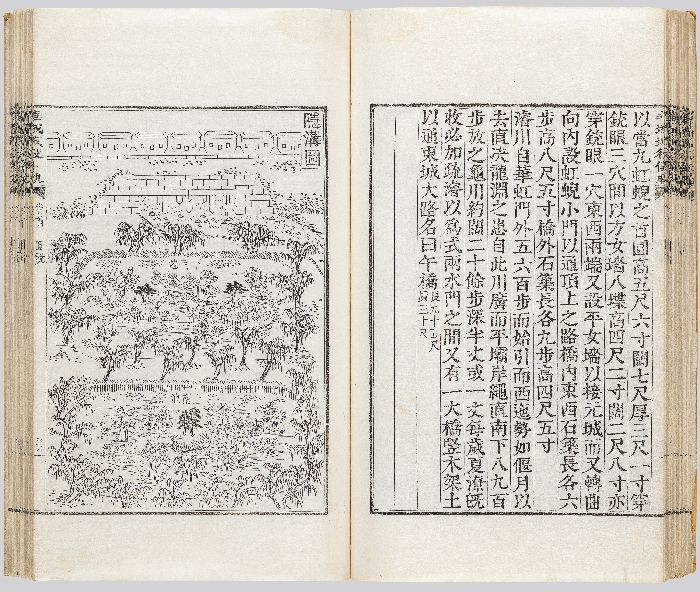 以當九虹蜺之首圓高五尺六寸闊七尺厚三尺一寸穿
銃眼三穴間以方女墻八堞高四尺二寸闊二尺八寸亦
穿銃眼一穴東西兩端又設平女墻以接元城而又轉曲
向內設虹蜺小門以通頂上之路橋內東西石築長各六
步高八尺五寸橋外石築長各九步高四尺五寸
濬川自華虹門外五六百步而始引而西迤勢如偃月以
去直决龍淵之患自此川廣而平壩岸繩直南下八九百
步放之龜川約闊二十餘步深半丈或一丈每歲夏潦旣
收必加疏濬以爲式兩水門之間又有一大橋竪木架土
以通東城大路名曰午橋
隱溝圖